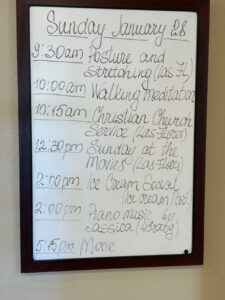 Sunday January 28
9:30am Posture and
Stretching (Las Fl.)
10:00am Walking Meditation
10:15am Christian Church
Service (Las Flores)
12:30pm Sunday at the
Movies (Las Flores)
2:00pm Ice Cream Social
Ice cream
2:00pm Piano music by
Jessica
5:15pm Movie